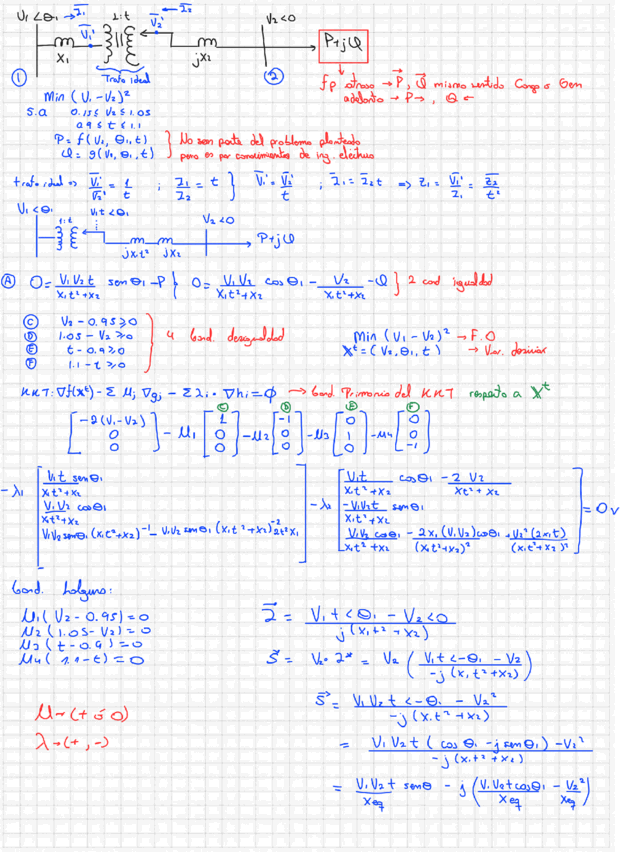 U₁<θ₁ → I̅₁ 1:t ← I̅₂ V₂<0
V̅₁' V̅₂'
X₁ jX₂ P+jQ
① Trafo ideal ②
fp atraso → P⃗, Q⃗ mismo sentido Carga o Gen
adelanto → P→, Q←
Min (V₁-V₂)²
s.a 0.95≤V₂≤1.05
0.9≤t≤1.1
P=f(V₁, θ₁, t)
Q=g(V₁, θ₁, t)
No son parte del problema planteado
pero es por conocimientos de ing. eléctrica
trafo ideal => V̅₁'/V̅₂' = 1/t ; I̅₁/I̅₂ = t } V̅₁' = V̅₂'/t ; I̅₁ = I̅₂t => Z₁ = V̅₁'/I̅₁ = Z̅₂/t²
V₁<θ₁ V₁t<θ₁ V₂<0
1:t
jX₁t² jX₂ P+jQ
Ⓐ 0 = V₁V₂t/(X₁t²+X₂) senθ₁ -P } 0 = V₁V₂/(X₁t²+X₂) cosθ₁ - V₂/(X₁t²+X₂) -Q } 2 cond igualdad
Ⓒ V₂-0.95≥0
Ⓓ 1.05-V₂≥0
Ⓔ t-0.9≥0
Ⓕ 1.1-t≥0
4 Cond. desigualdad
Min (V₁-V₂)² → F.O
X^t=(V₂,θ₁,t) → Var. decisión
KKT: ∇f(x^t) - Σ μj ∇gj - Σ λi · ∇hi = ϕ → Cond. Primaria del KKT respecto a X^t
Ⓒ Ⓓ Ⓔ Ⓕ
[-2(V₁-V₂) 0 0] - μ₁ [1 0 0] - μ₂ [-1 0 0] - μ₃ [0 1 0] - μ₄ [0 0 -1]
-λ₁ [V₁t senθ₁/(X₁t²+X₂)
V₁V₂ cosθ₁/(X₁t²+X₂)
V₁V₂senθ₁(X₁t²+X₂)⁻¹ - V₁V₂senθ₁(X₁t²+X₂)⁻² 2t²X₁]
-λ₂ [V₁t/(X₁t²+X₂) cosθ₁ - 2V₂/(Xt²+X₂)
-V₁V₂t/(X₁t²+X₂) senθ₁
V₁V₂ cosθ₁/(X₁t²+X₂) - 2X₁(V₁V₂)cosθ₁/(X₁t²+X₂)² + V₂²(2X₁t)/(X₁t²+X₂)²] = 0
Cond. holgura:
μ₁(V₂-0.95)=0
μ₂(1.05-V₂)=0
μ₃(t-0.9)=0
μ₄(1.1-t)=0
μ→(+ ó 0)
λ→(+,-)
I⃗ = (V₁t<θ₁ - V₂<0)/(j(X₁t²+X₂))
S⃗ = V₂·I* = V₂ ((V₁t<-θ₁ - V₂)/(-j(X₁t²+X₂)))
S⃗ = (V₁V₂t<-θ₁ - V₂²)/(-j(X₁t²+X₂))
= (V₁V₂t(cosθ₁-jsenθ₁)-V₂²)/(-j(X₁t²+X₂))
= V₁V₂t/Xeq senθ - j(V₁V₂tcosθ₁/Xeq - V₂²/Xeq)